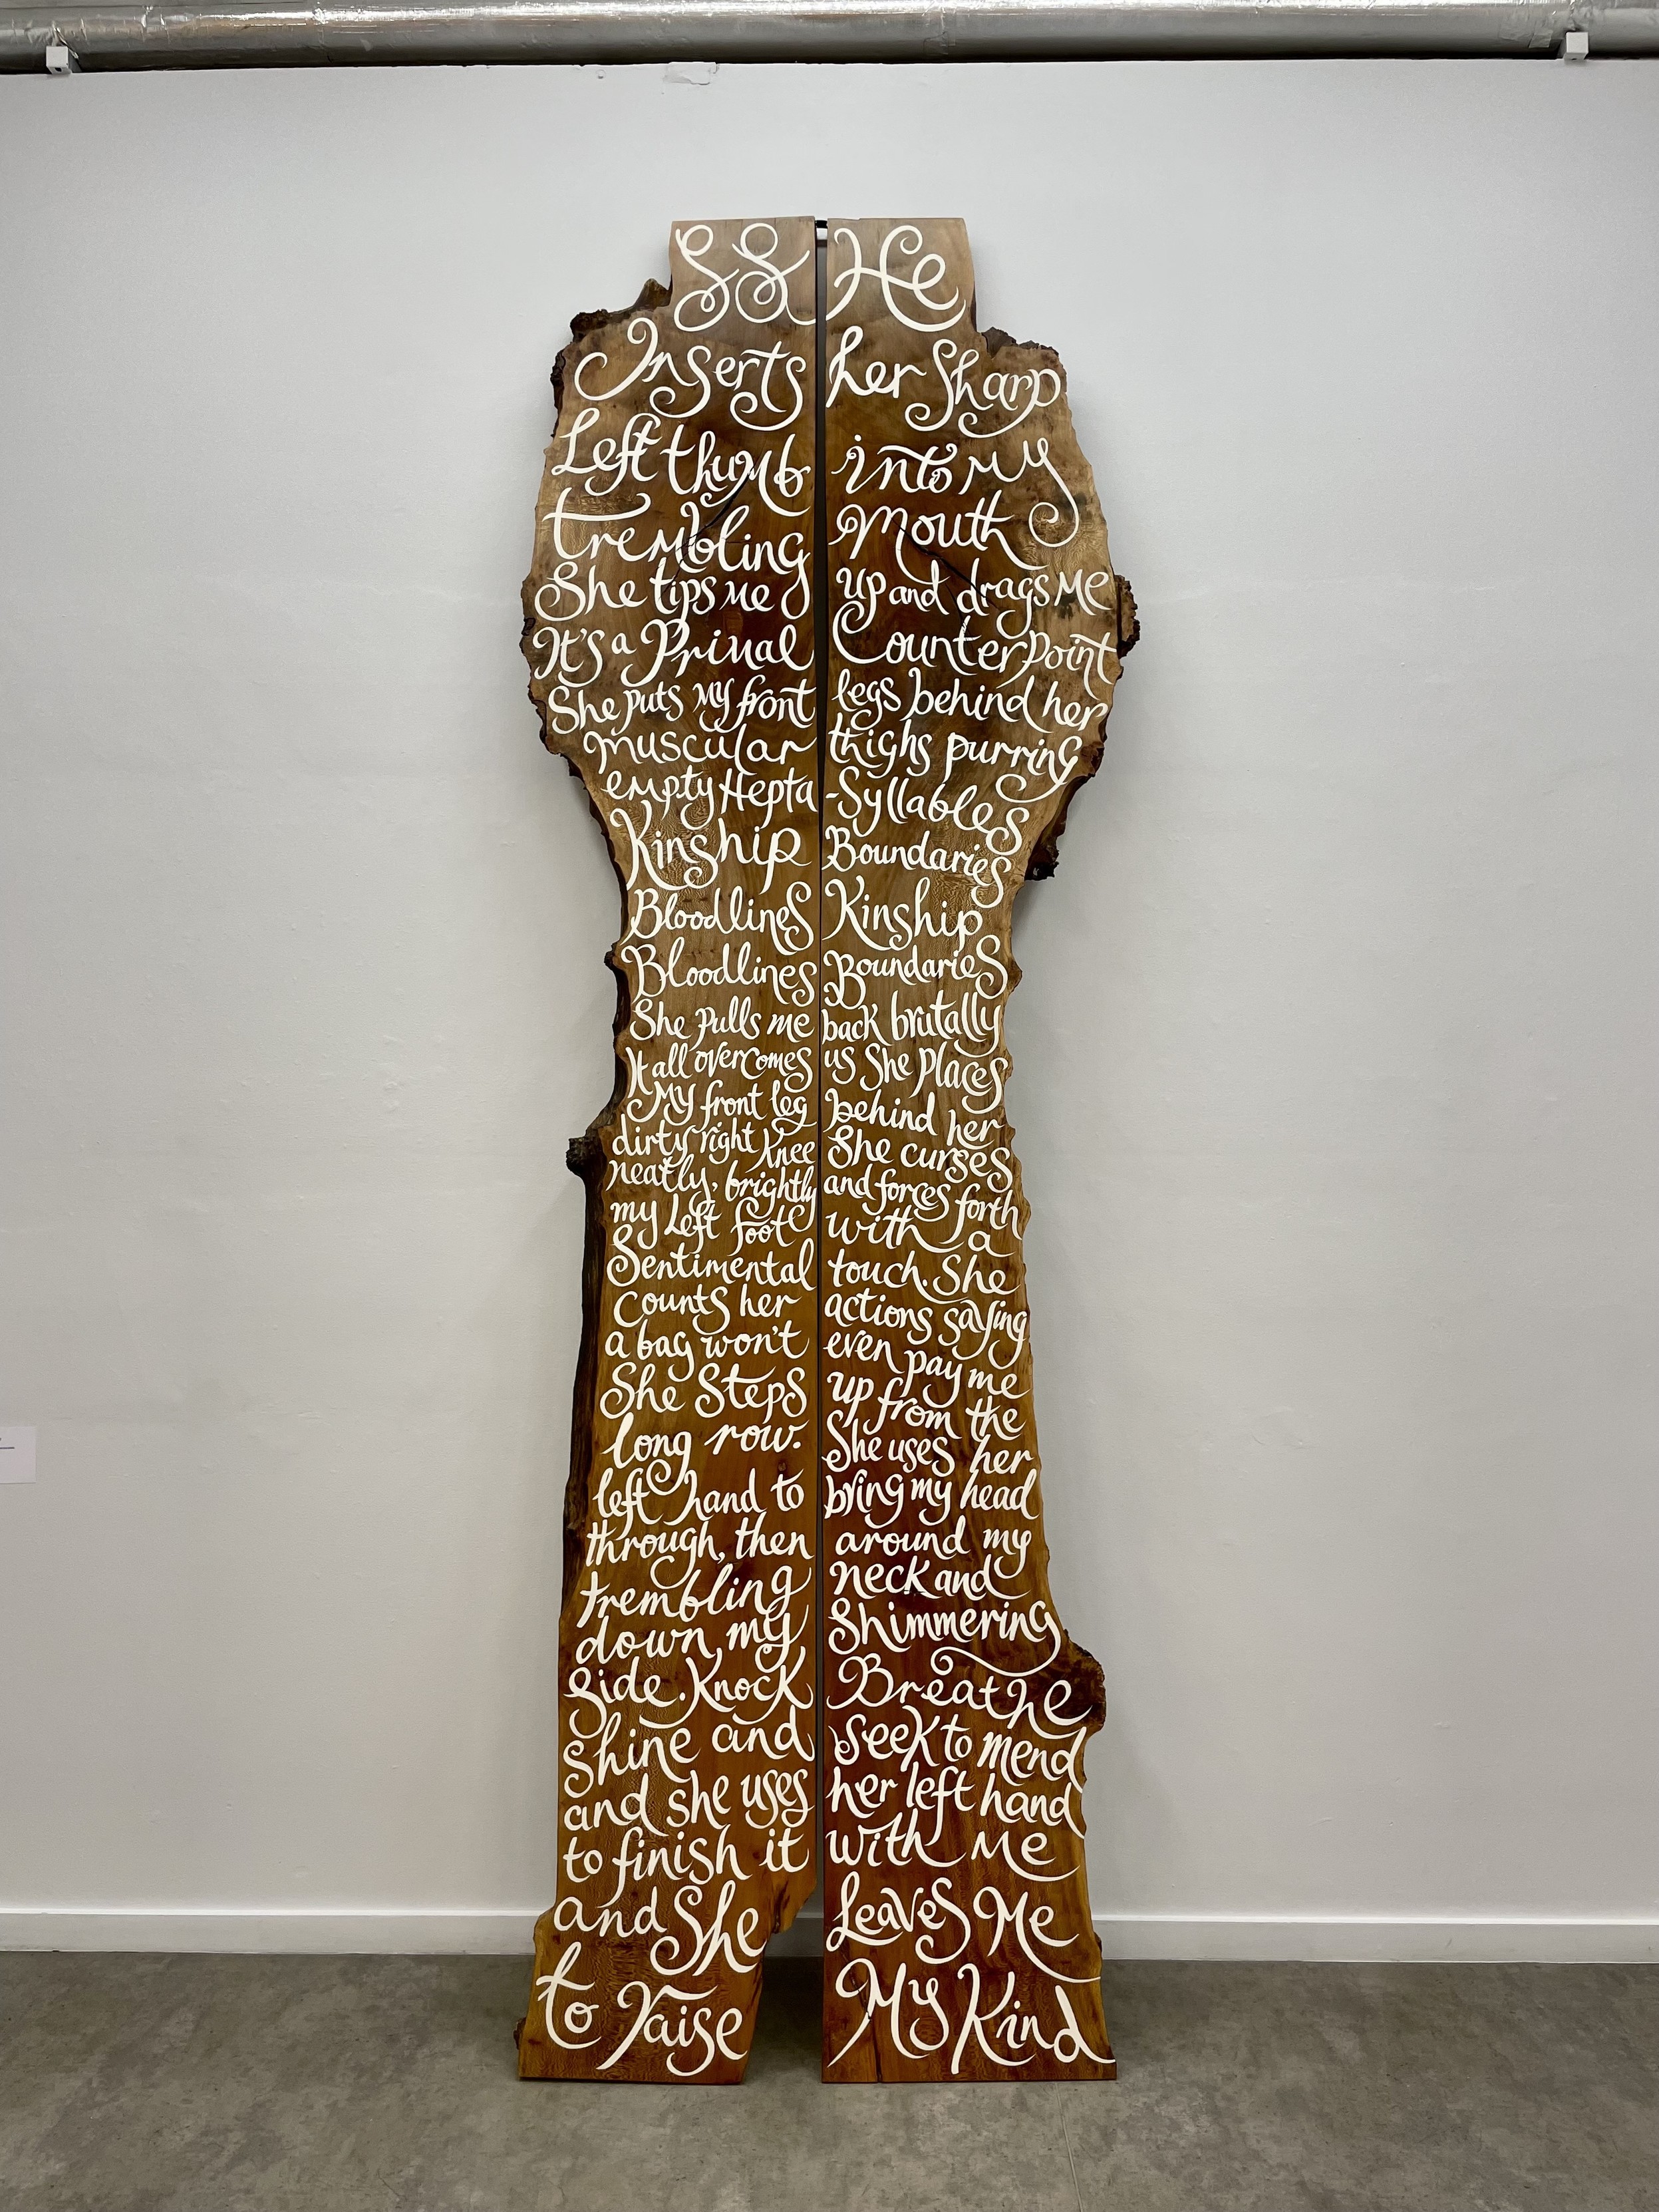 SSHe
Inserts her Sharp
Left thumb into my
trembling Mouth
She tips me up and drags me
It's a Primal Counterpoint
She puts my front legs behind her
muscular thighs purring
empty Hepta-Syllables
Kinship Boundaries
Bloodlines Kinship
Bloodlines Boundaries
She pulls me back brutally
It all overcomes us She Places
My front leg behind her
dirty right Knee She curses
neatly, brightly and forces forth
my Left foot with a
Sentimental touch. She
counts her actions saying
a bag won't even pay me
She Steps up from the
long row. She uses her
left hand to bring my head
through, then around my
trembling neck and
down my Shimmering
Side. Knock Breathe
Shine and Seek to mend
and she uses her left hand
to finish it with me
and She Leaves Me
to raise My Kind